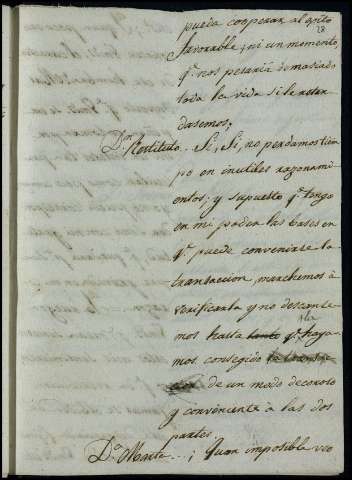 pueda cooperar al exito
28
favorable; ni un momento,
q.e nos pesaria demasiado
toda la vida si le retar
dasemos;
D.n Restituto.. Si, Si, no perdamos tiem
po en inutiles razonami
entos; y supuesto q.e tengo
en mi poder las bases en
q.e puede convenirse la
transaccion, marchemos à
verificarla y no descanse
mos hasta tanto q.e haya
mos conseguido
de un modo decoroso
y conveniente à las dos
partes.
D.a Marta...¡ Quan imposible veo